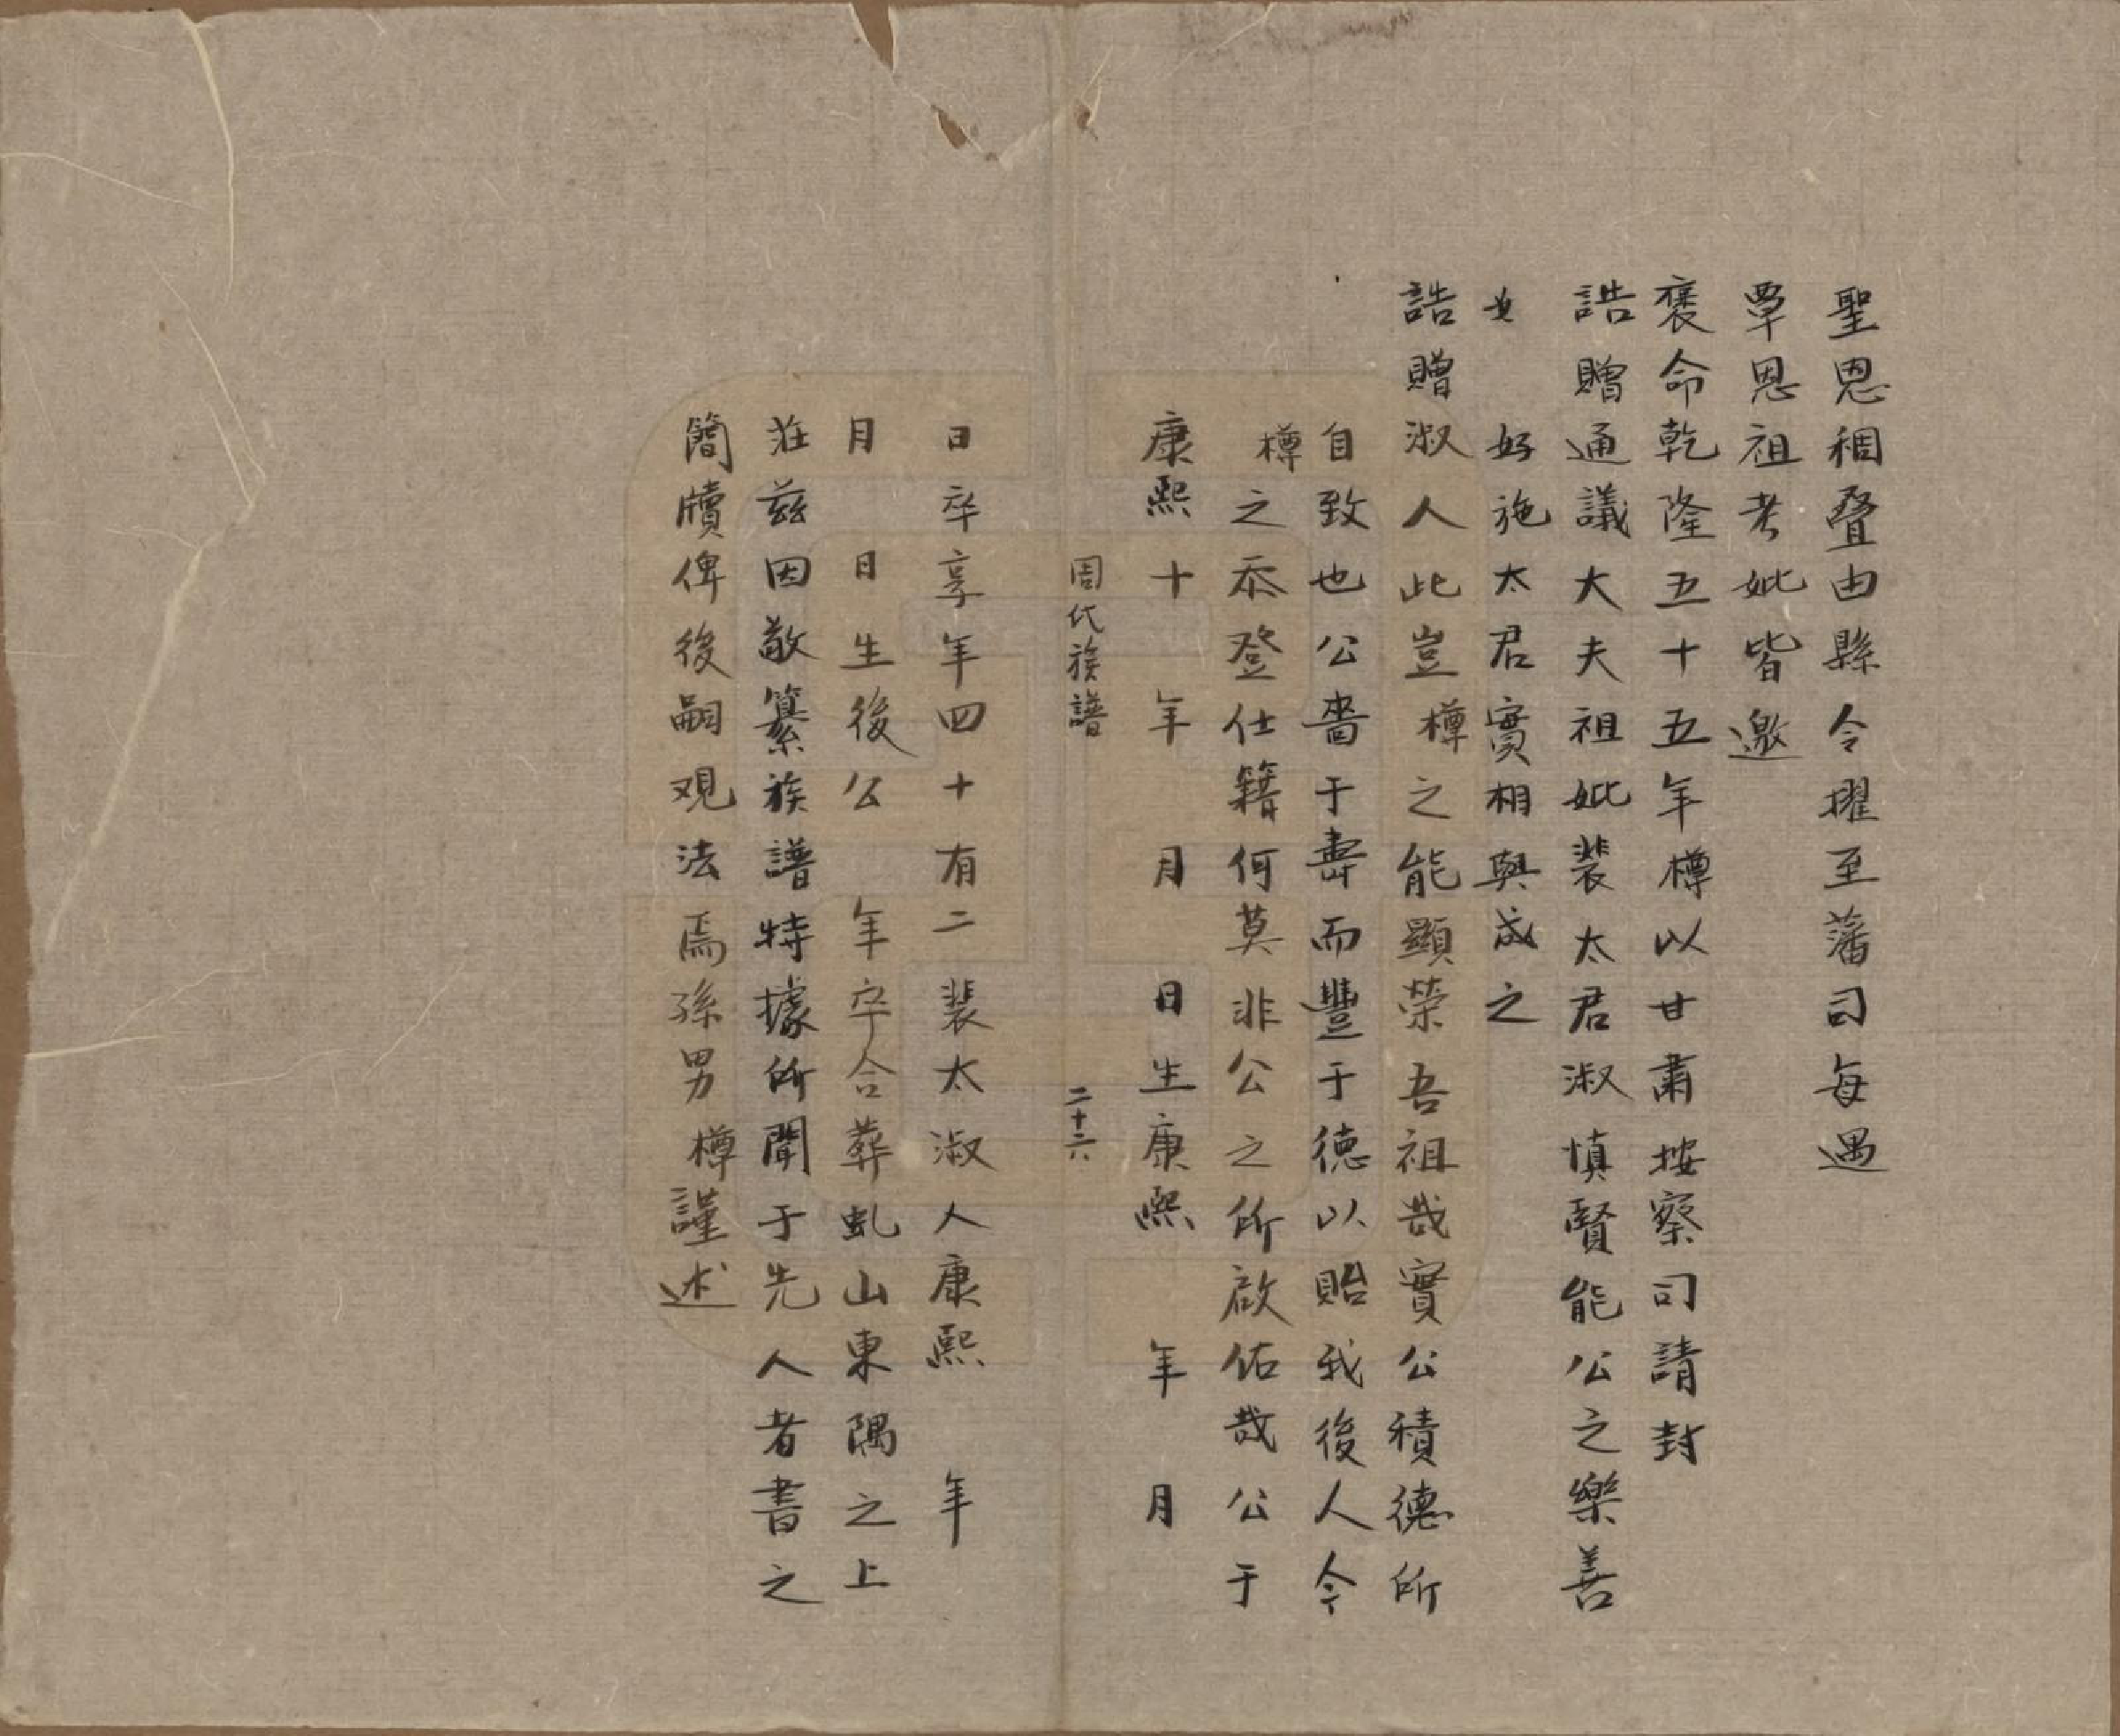 聖恩稠疊由縣令擢至藩司每遇
覃恩祖考妣皆邀
褒命乾隆五十五年樽以甘肅按察司請封
誥贈通議大夫祖妣裴太君淑慎賢能公之樂善
好施太君實相與成之
誥贈淑人此豈樽之能顯榮吾祖哉實公積德所
自致也公嗇于壽而豐于德以貽我後人今
樽之忝登仕籍何莫非公之所啟佑哉公于
康熙十年月日生康熙年月
周氏族譜
二十六
日卒享年四十有二裴太淑人康熙年
月日生後公年卒合葬虬山東隅之上
莊茲因敬纂族譜特據所聞于先人者書之
簡牘俾後嗣观法焉孫男樽謹述